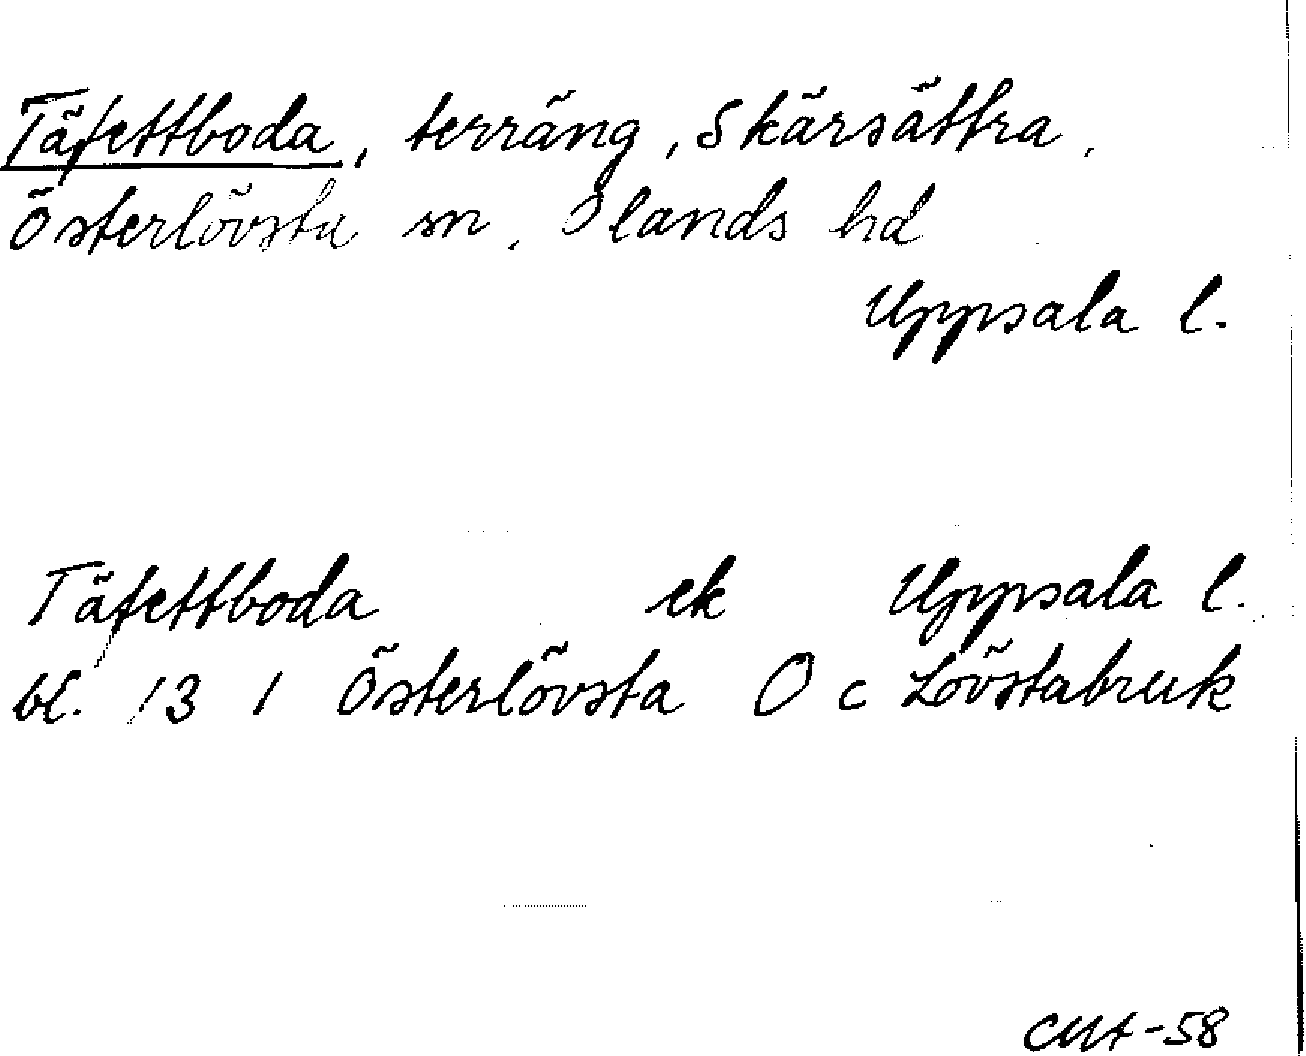 Täfettboda, terräng, Skärsättra,
Österlövsta sn, Olands hd
Uppsala l.
Täfettboda ek Uppsala l.
bl. 13 1 Österlövsta O c Lövstabruk
CMA-58